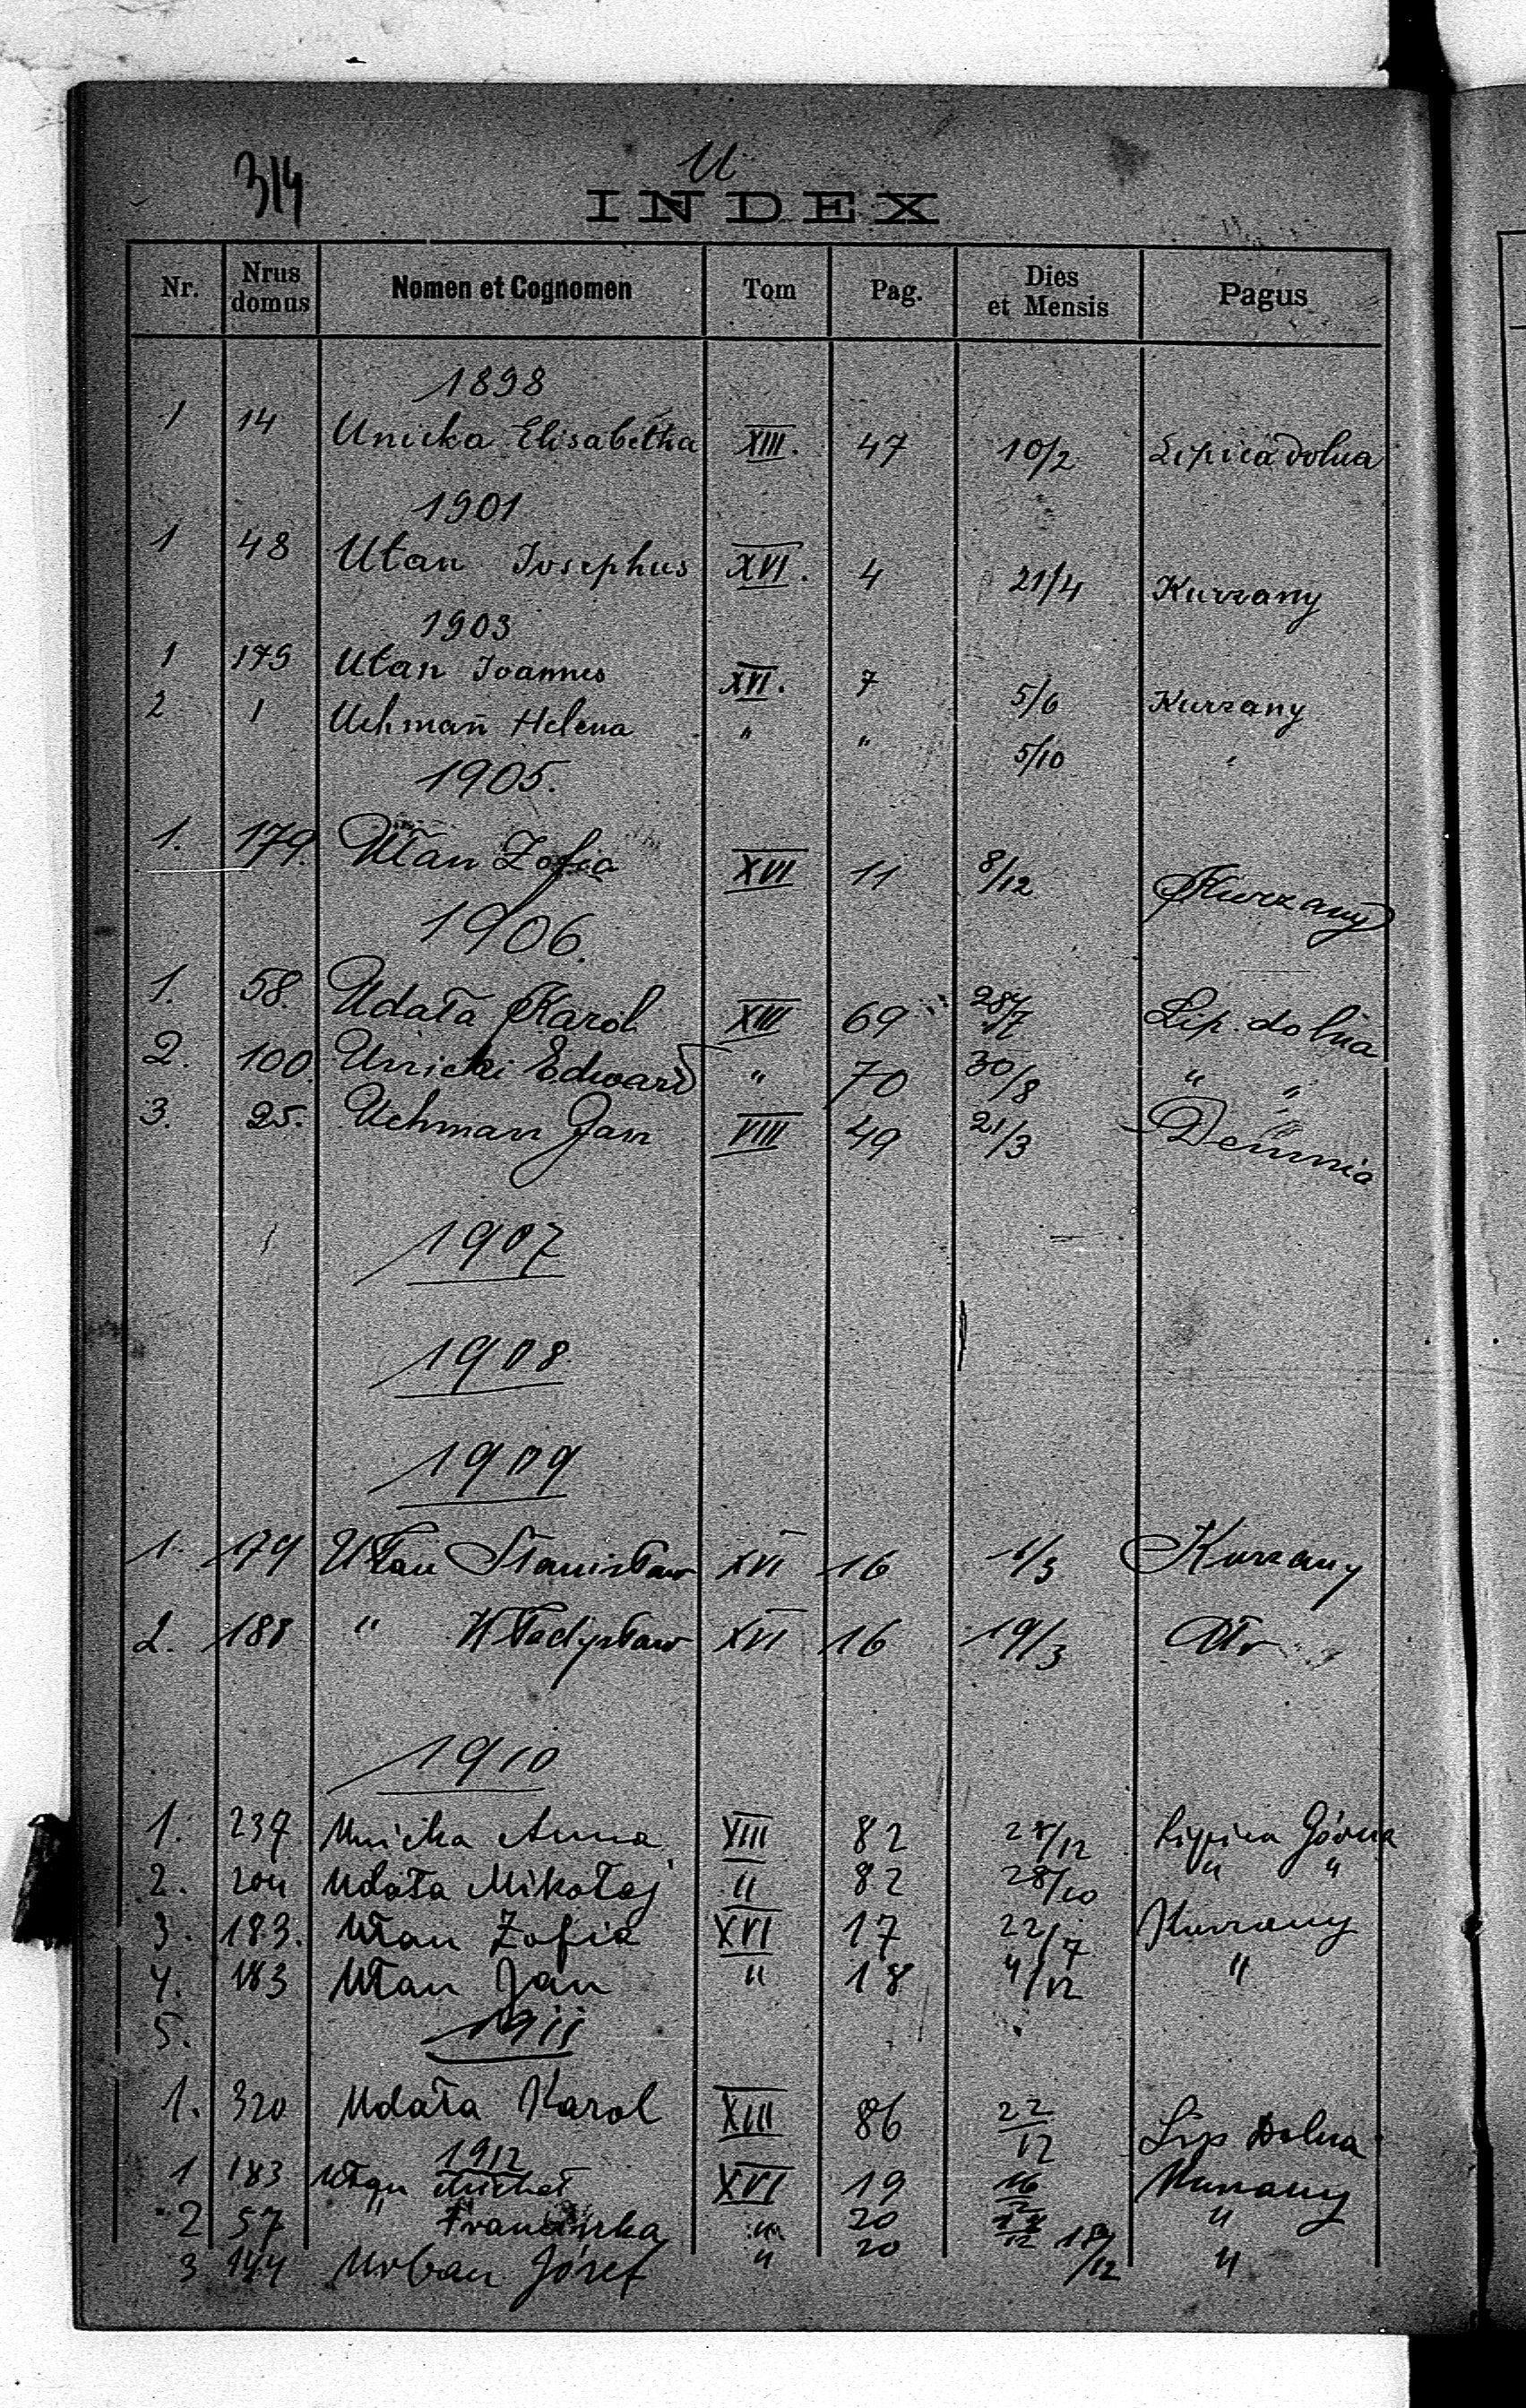 314
U
INDEX
Nr. Nrus domus Nomen et Cognomen Tom Pag. Dies et Mensis Pagus
1898
1 14 Unicka Elisabetha XIII. 47 10/2 Lipica dolna
1901
1 48 Utan Josephus XVI. 4 21/4 Kurzany
1903
1 179 Utan Joannes XVI. 7 5/6 Kurzany
2 1 Uchman Helena " " 5/10 "
1905.
1. 179. Ułan Zofia XVI 11 8/12 Kurzany
1906.
1. 58. Udała Karol XIII 69 28/7 Lip. dolna
2. 100. Unicki Edward " 70 30/8 " "
3. 25. Uchman Jan VIII 49 21/3 Demnia
1907
1908
1909
1. 179 Ułan Stanisław XVI 16 1/3 Kurzany
2. 188 " Władysław XVI 16 19/3 Dto
1910
1. 237 Unicka Anna XIII 82 28/12 Lipica Górna
2. 204 Udała Mikołaj " 82 28/10 " "
3. 183. Ułan Zofia XVI 17 22/7 Kurzany
4. 183 Ułan Jan " 18 4/12 "
5.
1911
1. 320 Udała Karol XIII 86 22/12 Lip Dolna
1912
1 183 Ułan Michał XVI 19 16/2 Kurzany
2 57 " Franciszka " 20 "
3 144 Urban Józef " 20 18/12 "